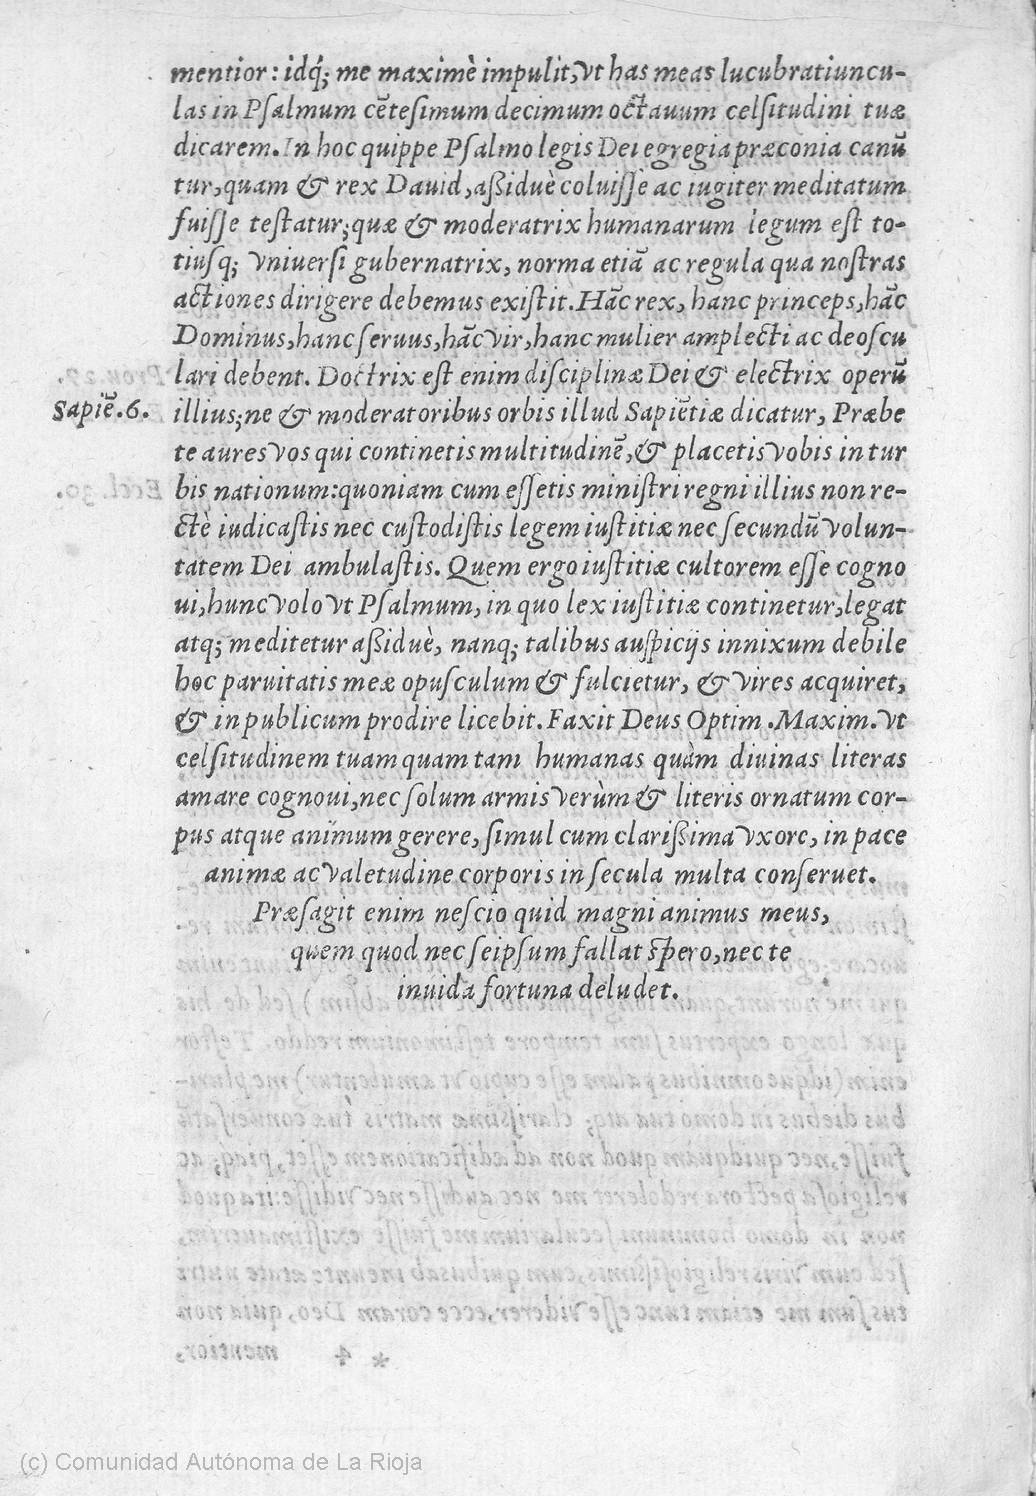 mentior: idq́; me maximè impulit, vt has meas lucubratiuncu-
las in Psalmum cẽtesimum decimum octauum celsitudini tuæ
dicarem. In hoc quippe Psalmo legis Dei egregia præconia canũ
tur, quam & rex Dauid, aßiduè coluisse ac iugiter meditatum
fuisse testatur; quæ & moderatrix humanarum legum est to-
tiusq; vniuersi gubernatrix, norma etiã ac regula qua nostras
actiones dirigere debemus existit. Hãc rex, hanc princeps, hãc
Dominus, hanc seruus, hãc vir, hanc mulier amplecti ac deoscu
lari debent. Doctrix est enim disciplinæ Dei & electrix operũ
Sapiẽ. 6.
illius; ne & moderatoribus orbis illud Sapiẽtiæ dicatur, Præbe
te aures vos qui continetis multitudinẽ, & placetis vobis in tur
bis nationum: quoniam cum essetis ministri regni illius non re-
ctè iudicastis nec custodistis legem iustitiæ nec secundũ volun-
tatem Dei ambulastis. Quem ergo iustitiæ cultorem esse cogno
ui, hunc volo vt Psalmum, in quo lex iustitiæ continetur, legat
atq; meditetur aßiduè, nanq; talibus auspicijs innixum debile
hoc paruitatis meæ opusculum & fulcietur, & vires acquiret,
& in publicum prodire licebit. Faxit Deus Optim. Maxim. vt
celsitudinem tuam quam tam humanas quàm diuinas literas
amare cognoui, nec solum armis verùm & literis ornatum cor-
pus atque animum gerere, simul cum clarißima vxore, in pace
animæ ac valetudine corporis in secula multa conseruet.
Præsagit enim nescio quid magni animus meus,
quem quod nec seipsum fallat spero, nec te
inuida fortuna deludet.
(c) Comunidad Autónoma de La Rioja